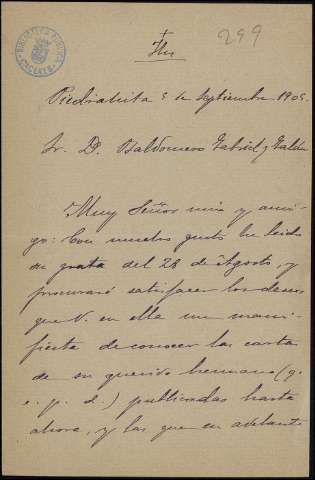 BIBLIOTECA PUBLICA
CACERES
299
Jhs
Piedrahita 5 de Septiembre 1905.
Sr. D. Baldomero Gabriel y Galán
Muy Señor mio y ami-
go: Con mucho gusto he leido
su grata del 28 de Agosto, y
procuraré satisfacer los deseos
que V. en ella me mani-
fiesta de conocer las cartas
de su querido hermano (q.
e. p. d.) publicadas hasta
ahora, y las que en adelante